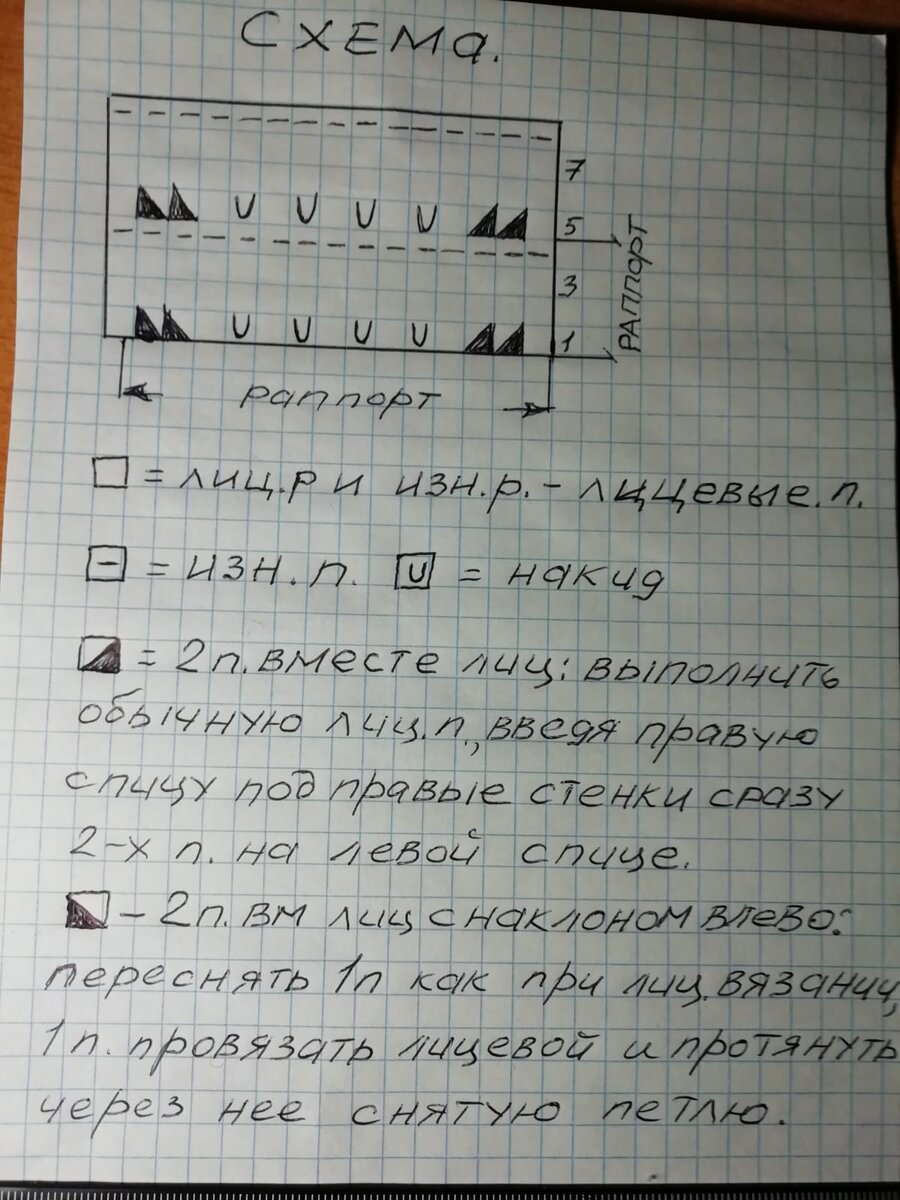 СХЕМА.
7
5
3
1
РАППОРТ
раппорт
= лиц.р и изн.р. - лицевые.п.
- = изн. п. U = накид
= 2 п. вместе лиц: выполнить
обычную лиц.п., введя правую
спицу под правые стенки сразу
2-х п. на левой спице.
- 2 п. вм лиц с наклоном влево:
переснять 1п как при лиц. вязании,
1 п. провязать лицевой и протянуть
через нее снятую петлю.